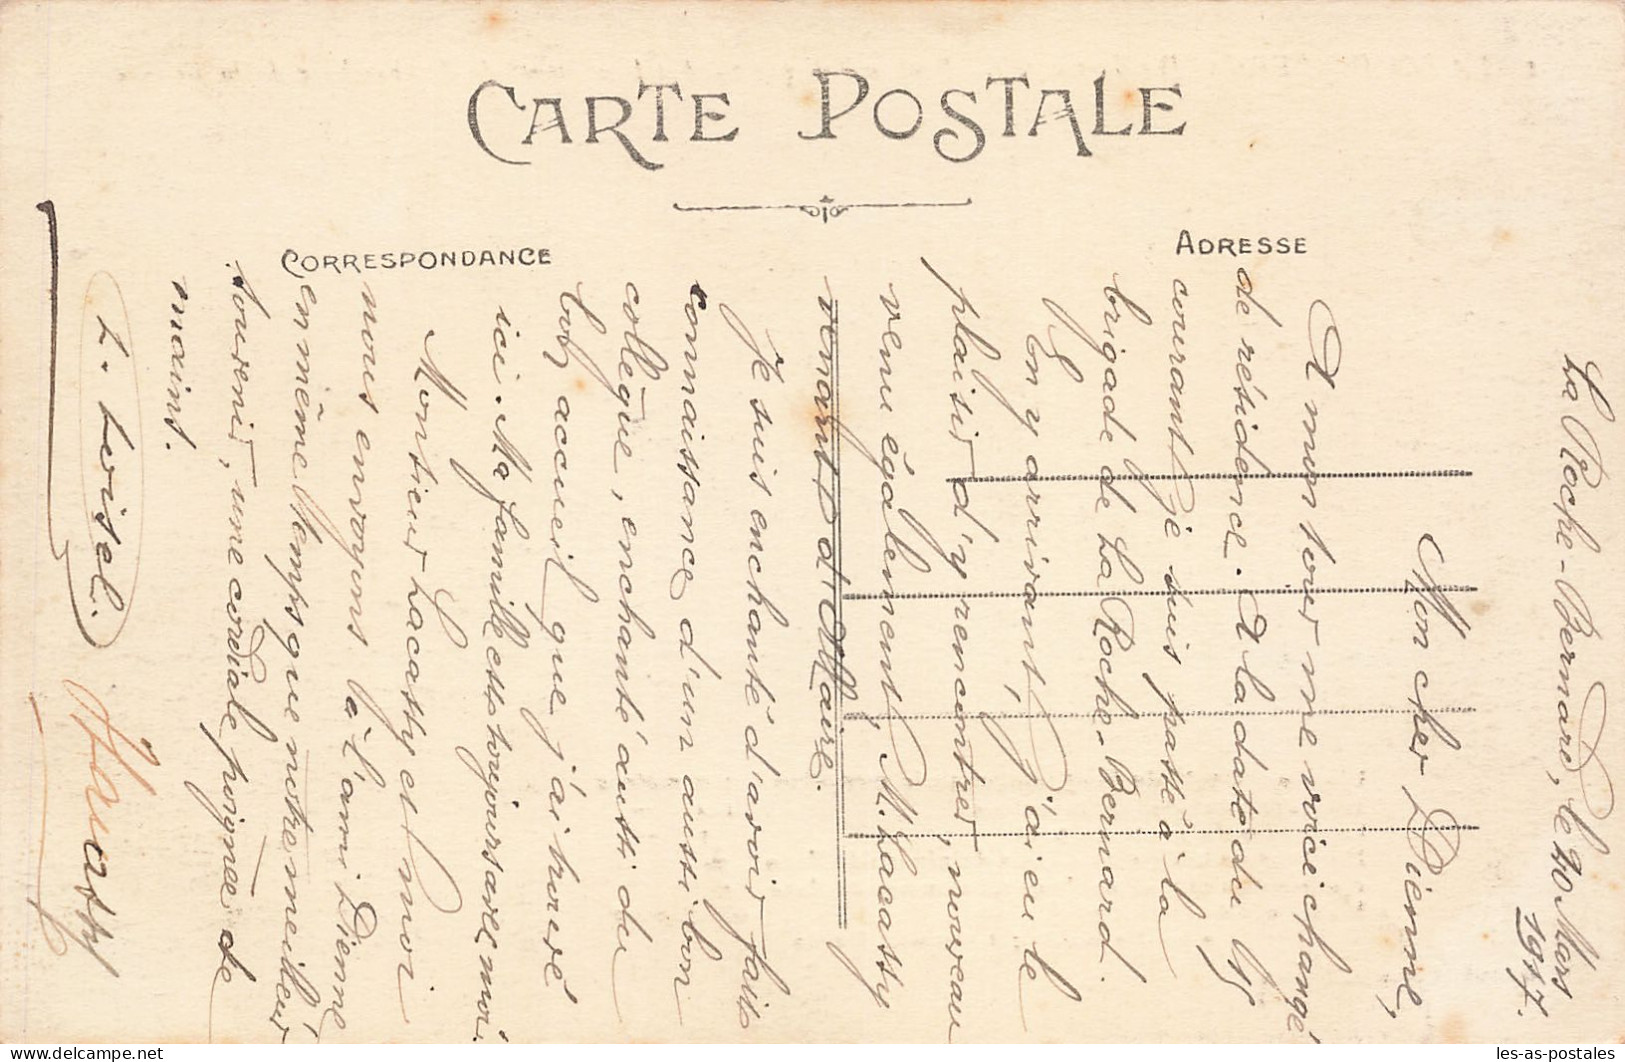 CARTE POSTALE
CORRESPONDANCE
ADRESSE
La Roche-Bernard, le 30 Mars
1917.
Mon cher Dienne,
A mon tour me voici changé
de résidence. A la date du 15
courant je suis passé à la
brigade de La Roche-Bernard.
En y arrivant, j'ai eu le
plaisir d'y rencontrer, nouveau
venu également, M. Lacassy
venant d'Allaire.
Je suis enchanté d'avoir fait
connaissance d'un aussi bon
collègue, enchanté aussi du
bon accueil que j'ai trouvé
ici. Ma famille est toujours avec moi.
Monsieur Lacassy et moi
nous envoyons à l'ami Dienne
en même temps que notre meilleur
souvenir, une cordiale poignée de
mains.
L. Loisel.
Lacassy
les-as-postales